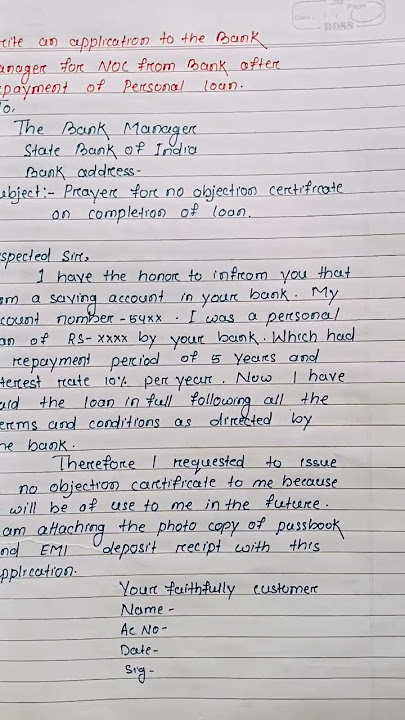 BOSS
rite an application to the Bank
anager for NOC from Bank after
epayment of Personal loan.
To,
The Bank Manager
State Bank of India
Bank address-
ubject:- Prayer for no objection certifrcate
on completion of loan.
spected Sir,
I have the honor to infrom you that
am a saving account in your bank. My
count nomber - 54xx. I was a personal
an of RS- xxxx by your bank. Which had
repayment period of 5 years and
terest rate 10% per year. Now I have
aid the loan in full following all the
erms and conditions as directed by
he bank.
Therefore I requested to issue
no objection cartificate to me because
will be of use to me in the future.
am attaching the photo copy of passbook
nd EMI deposit recipt with this
pplication.
Your faithfully customer
Name -
Ac No-
Date-
Sig-